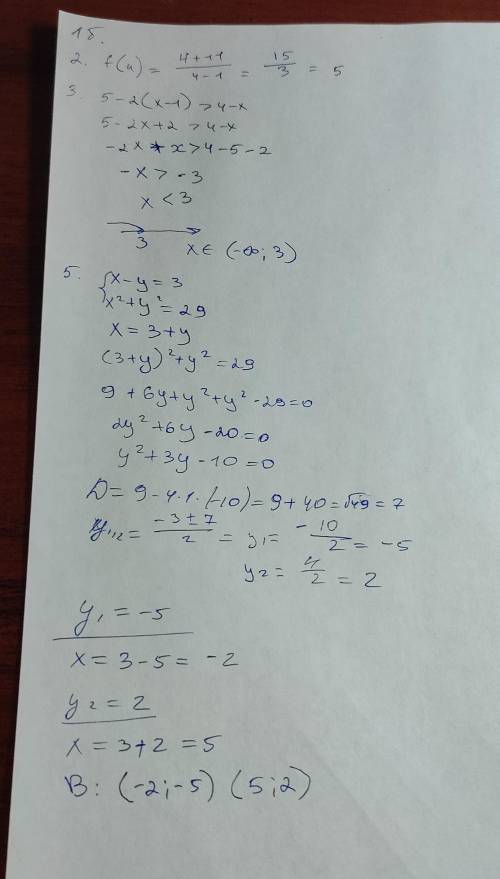 1б.
2. f(4) = \frac{4+11}{4-1} = \frac{15}{3} = 5
3. 5-2(x-1)>4-x
5-2x+2>4-x
-2x+x>4-5-2
-x>-3
x<3
3 x∈(-∞;3)
5. {x-y=3
x²+y²=29
x=3+y
(3+y)²+y²=29
9+6y+y²+y²-29=0
2y²+6y-20=0
y²+3y-10=0
D=9-4·1·(-10)=9+40=√49=7
y₁,₂=\frac{-3±7}{2}=y₁=-\frac{10}{2}=-5
y₂=\frac{4}{2}=2
y₁=-5
x=3-5=-2
y₂=2
x=3+2=5
В: (-2;-5) (5;2)